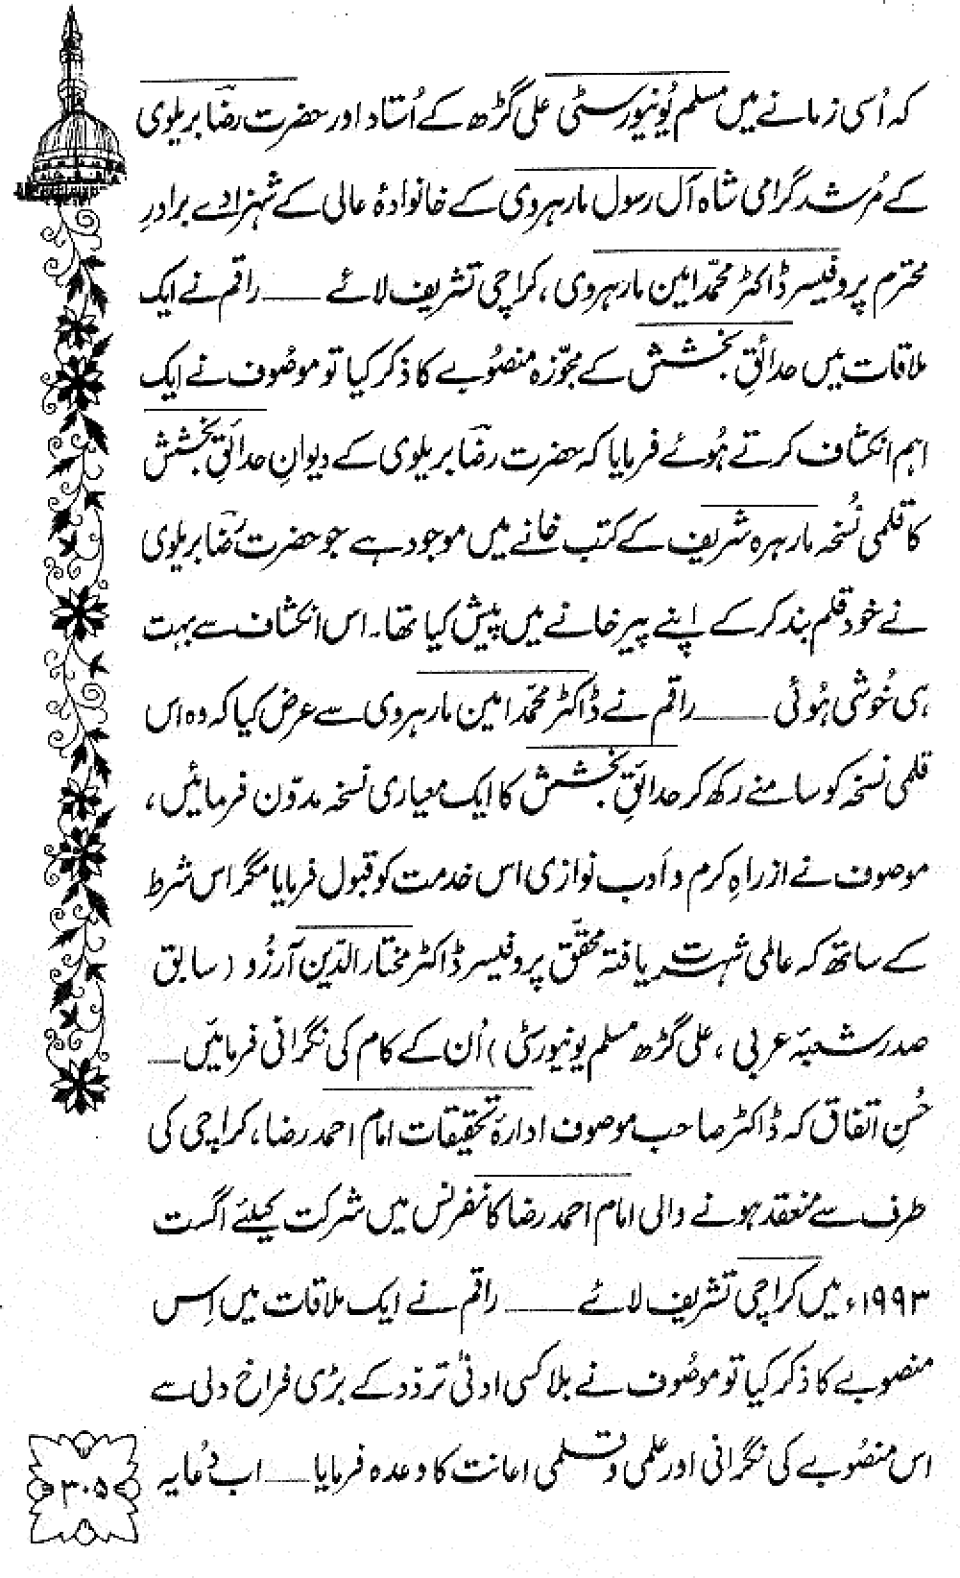 کہ اُسی زمانے میں مسلم یُونیورسٹی علی گڑھ کے اُستاد اور حضرت رضاؔ بریلوی
کے مُرشد گرامی شاہ آلِ رسول مارہروی کے خانوادۂ عالی کے شہزادے برادرِ
محترم پروفیسر ڈاکٹر محمّد امین مارہروی ، کراچی تشریف لائے ــــ راقم نے ایک
ملاقات میں حدائقِ بخشش کے مجوّزہ منصُوبے کا ذکر کیا تو موصُوف نے ایک
اہم انکشاف کرتے ہُوئے فرمایا کہ حضرت رضاؔ بریلوی کے دیوانِ حدائقِ بخشش
کا قلمی نُسخہ مارہرہ شریف کے کتب خانے میں موجود ہے جو حضرت رضاؔ بریلوی
نے خود قلم بند کر کے اپنے پیر خانے میں پیش کیا تھا۔ اس انکشاف سے بہت
ہی خُوشی ہُوئی ــــ راقم نے ڈاکٹر محمّد امین مارہروی سے عرض کیا کہ وہ اس
قلمی نسخہ کو سامنے رکھ کر حدائقِ بخشش کا ایک معیاری نسخہ مدوّن فرمائیں ،
موصوف نے از راہِ کرم و اَدب نوازی اس خدمت کو قبول فرمایا مگر اس شرط
کے ساتھ کہ عالمی شہرت یافتہ محقّق پروفیسر ڈاکٹر مختار الدّین آرزُو ( سابق
صدر شعبۂ عربی ، علی گڑھ مسلم یونیورسٹی ) اُن کے کام کی نگرانی فرمائیں ــــ
حُسنِ اتفاق کہ ڈاکٹر صاحب موصوف ادارۂ تحقیقات امام احمد رضا ، کراچی کی
طرف سے منعقد ہونے والی امام احمد رضا کانفرنس میں شرکت کیلئے اگست
۱۹۹۳ء میں کراچی تشریف لائے ــــ راقم نے ایک ملاقات میں اِس
منصوبے کا ذکر کیا تو موصُوف نے بلا کسی ادنیٰ تردّد کے بڑی فراخ دلی سے
اس منصُوبے کی نگرانی اور علمی و قلمی اعانت کا وعدہ فرمایا ــــ اب دُعا یہ
۳۰۵